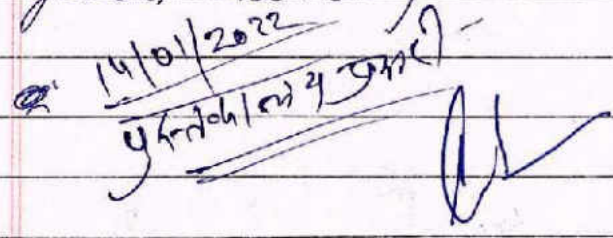 14/01/2022
पुस्तकालय प्रभारी